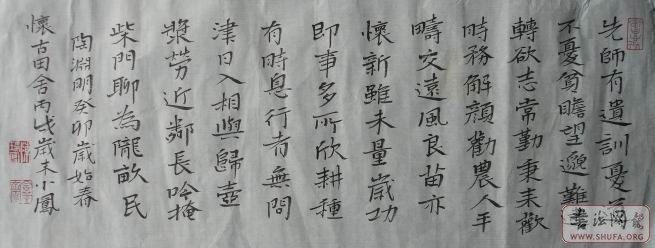 先師有遺訓憂道
不憂貧瞻望邈難
轉欲志常勤秉耒歡
時務解顏勸農人平
疇交遠風良苗亦
懷新雖未量歲功
即事多所欣耕種
有時息行者無問
津日入相與歸壺
漿勞近鄰長吟掩
柴門聊為隴畝民
陶淵明癸卯歲始春
懷古田舍丙戌歲末小鳳
WWW.SHUFA.ORG